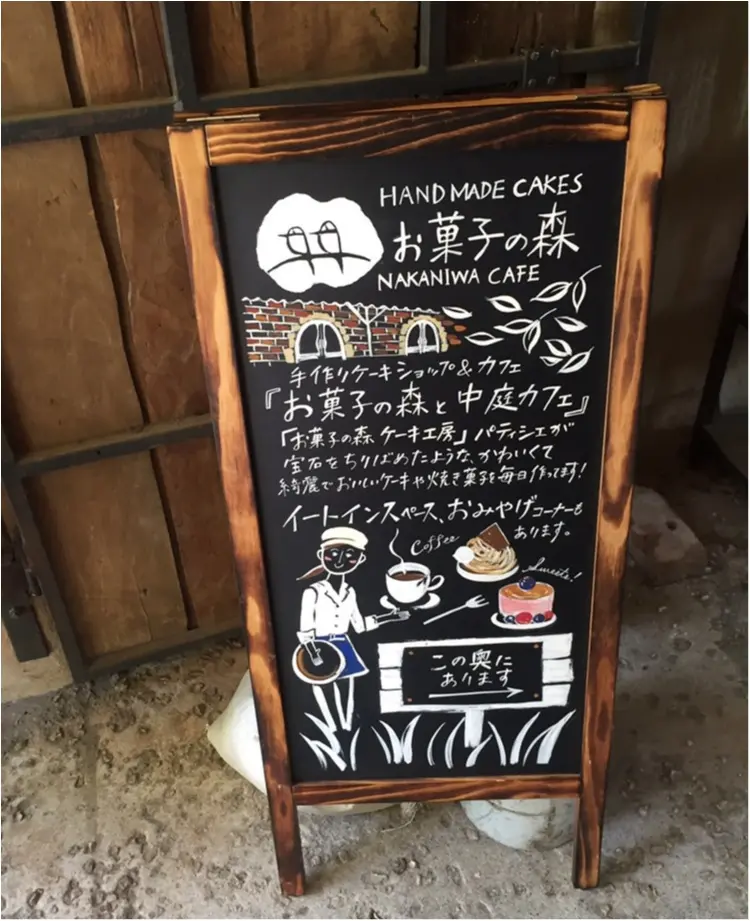 HANDMADE CAKES
お菓子の森
NAKANIWA CAFE
手作りケーキショップ&カフェ
『お菓子の森と中庭カフェ』
「お菓子の森 ケーキ工房」パティシエが
宝石をちりばめたような、かわいくて
綺麗でおいしいケーキや焼き菓子を毎日作ってます!
イートインスペース、おみやげコーナーも
あります。
Coffee
Sweets!
この奥に
あります